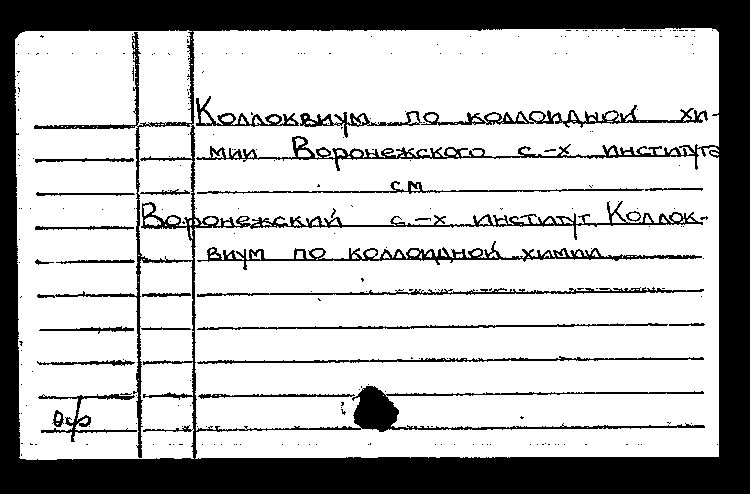 Коллоквиум по коллоидной хи-
мии Воронежского с.-х института
см
Воронежский с.-х институт Коллок-
виум по коллоидной химии